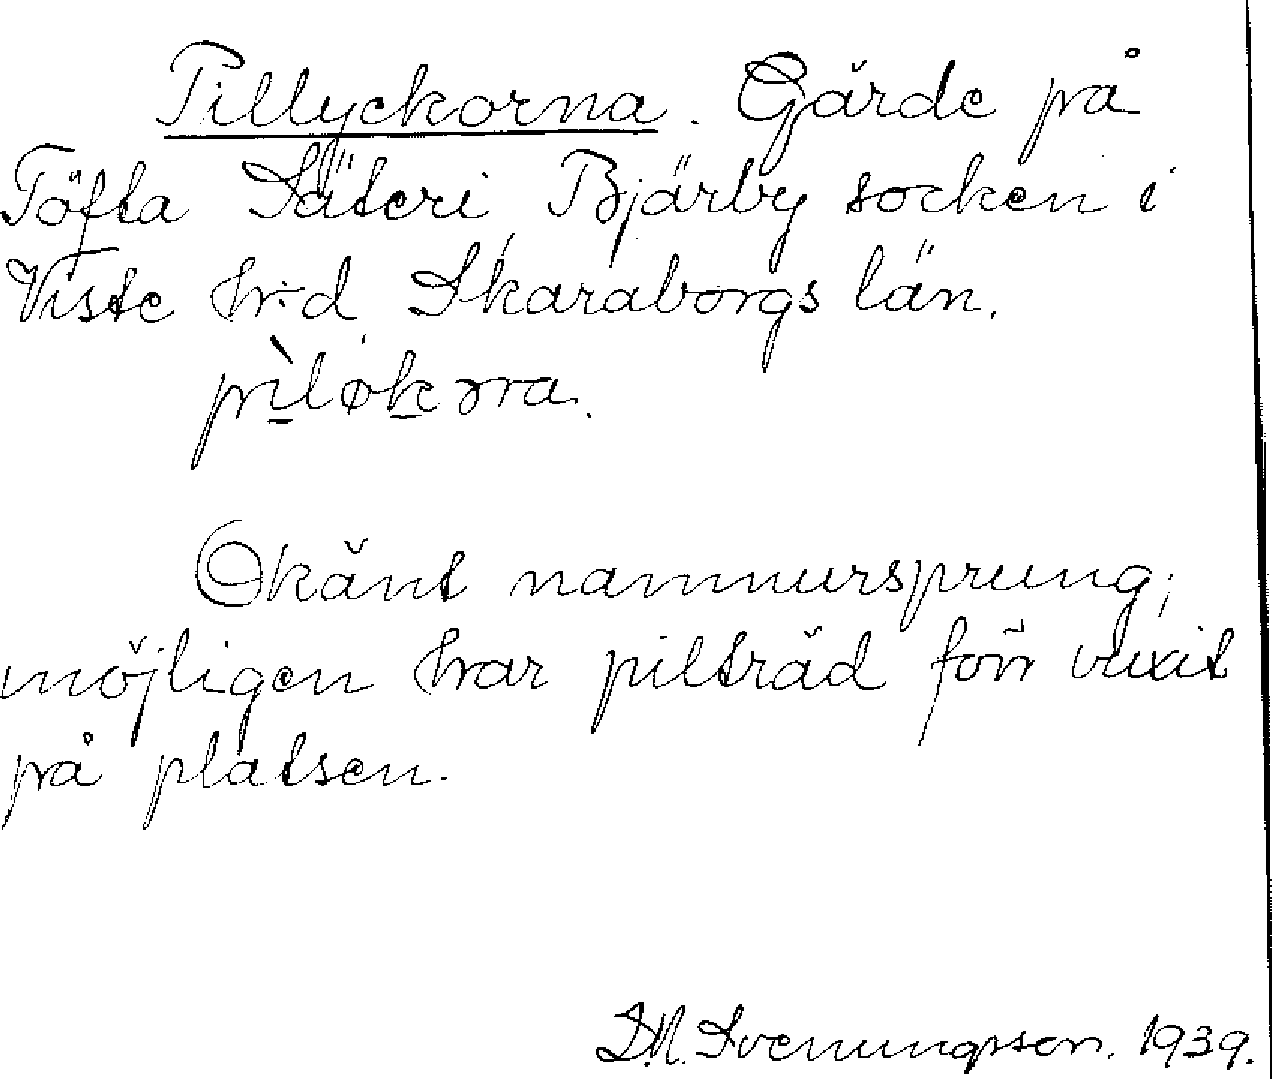 Pillyckorna. Gärde på
Töfta Säteri, Bjärby socken i
Viste h:d, Skaraborgs län.
pìløkerna.
Okänt namnursprung;
möjligen har pilträd förr vuxit
på platsen.
S.M. Svenungsson. 1939.